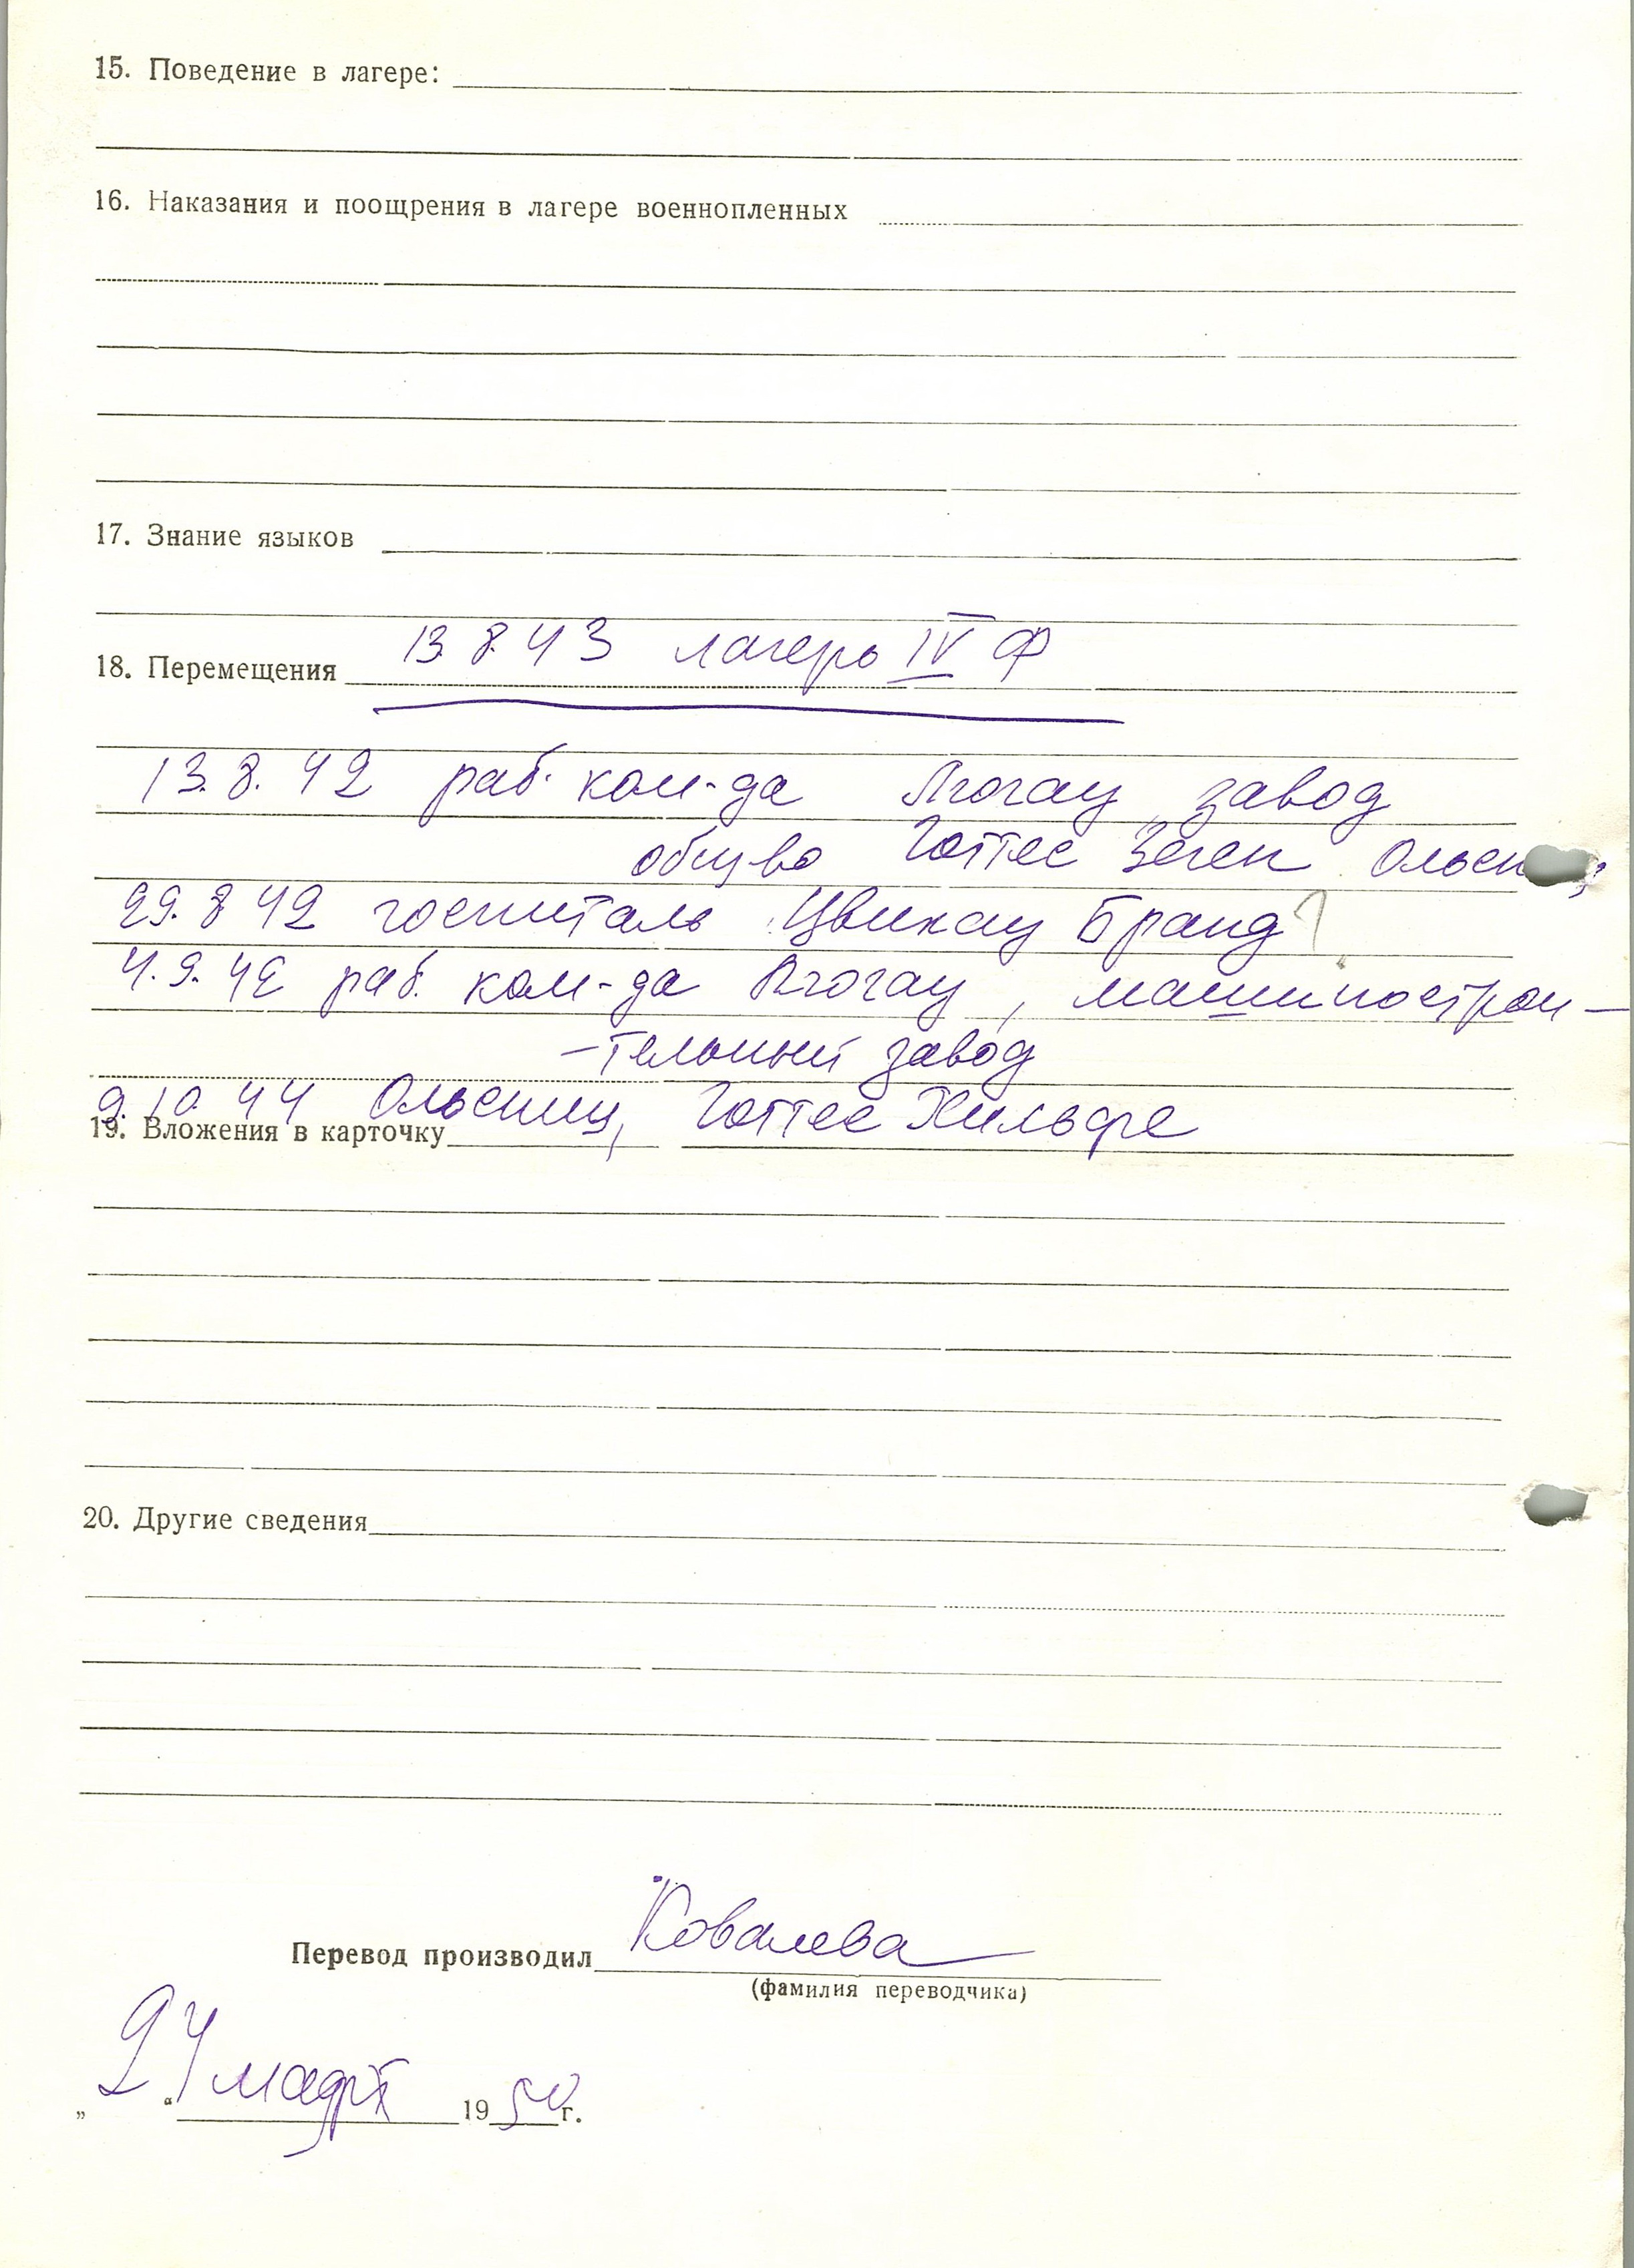 15. Поведение в лагере:
16. Наказания и поощрения в лагере военнопленных
17. Знание языков
13.8.43 лагерь IV Ф
18. Перемещения
13.8.42 раб. ком-да завод
общ-во Готтес Зеген Ольсн
29.8 42 госпиталь Цвикау Бранд ?
4.9.42 раб. ком-да , машинострои-
-тельный завод
9.10.44 Ольсниц, Готтес Хильфе
19. Вложения в карточку
20. Другие сведения
Перевод производил Ковалева
(фамилия переводчика)
„24“ марта 1950 г.